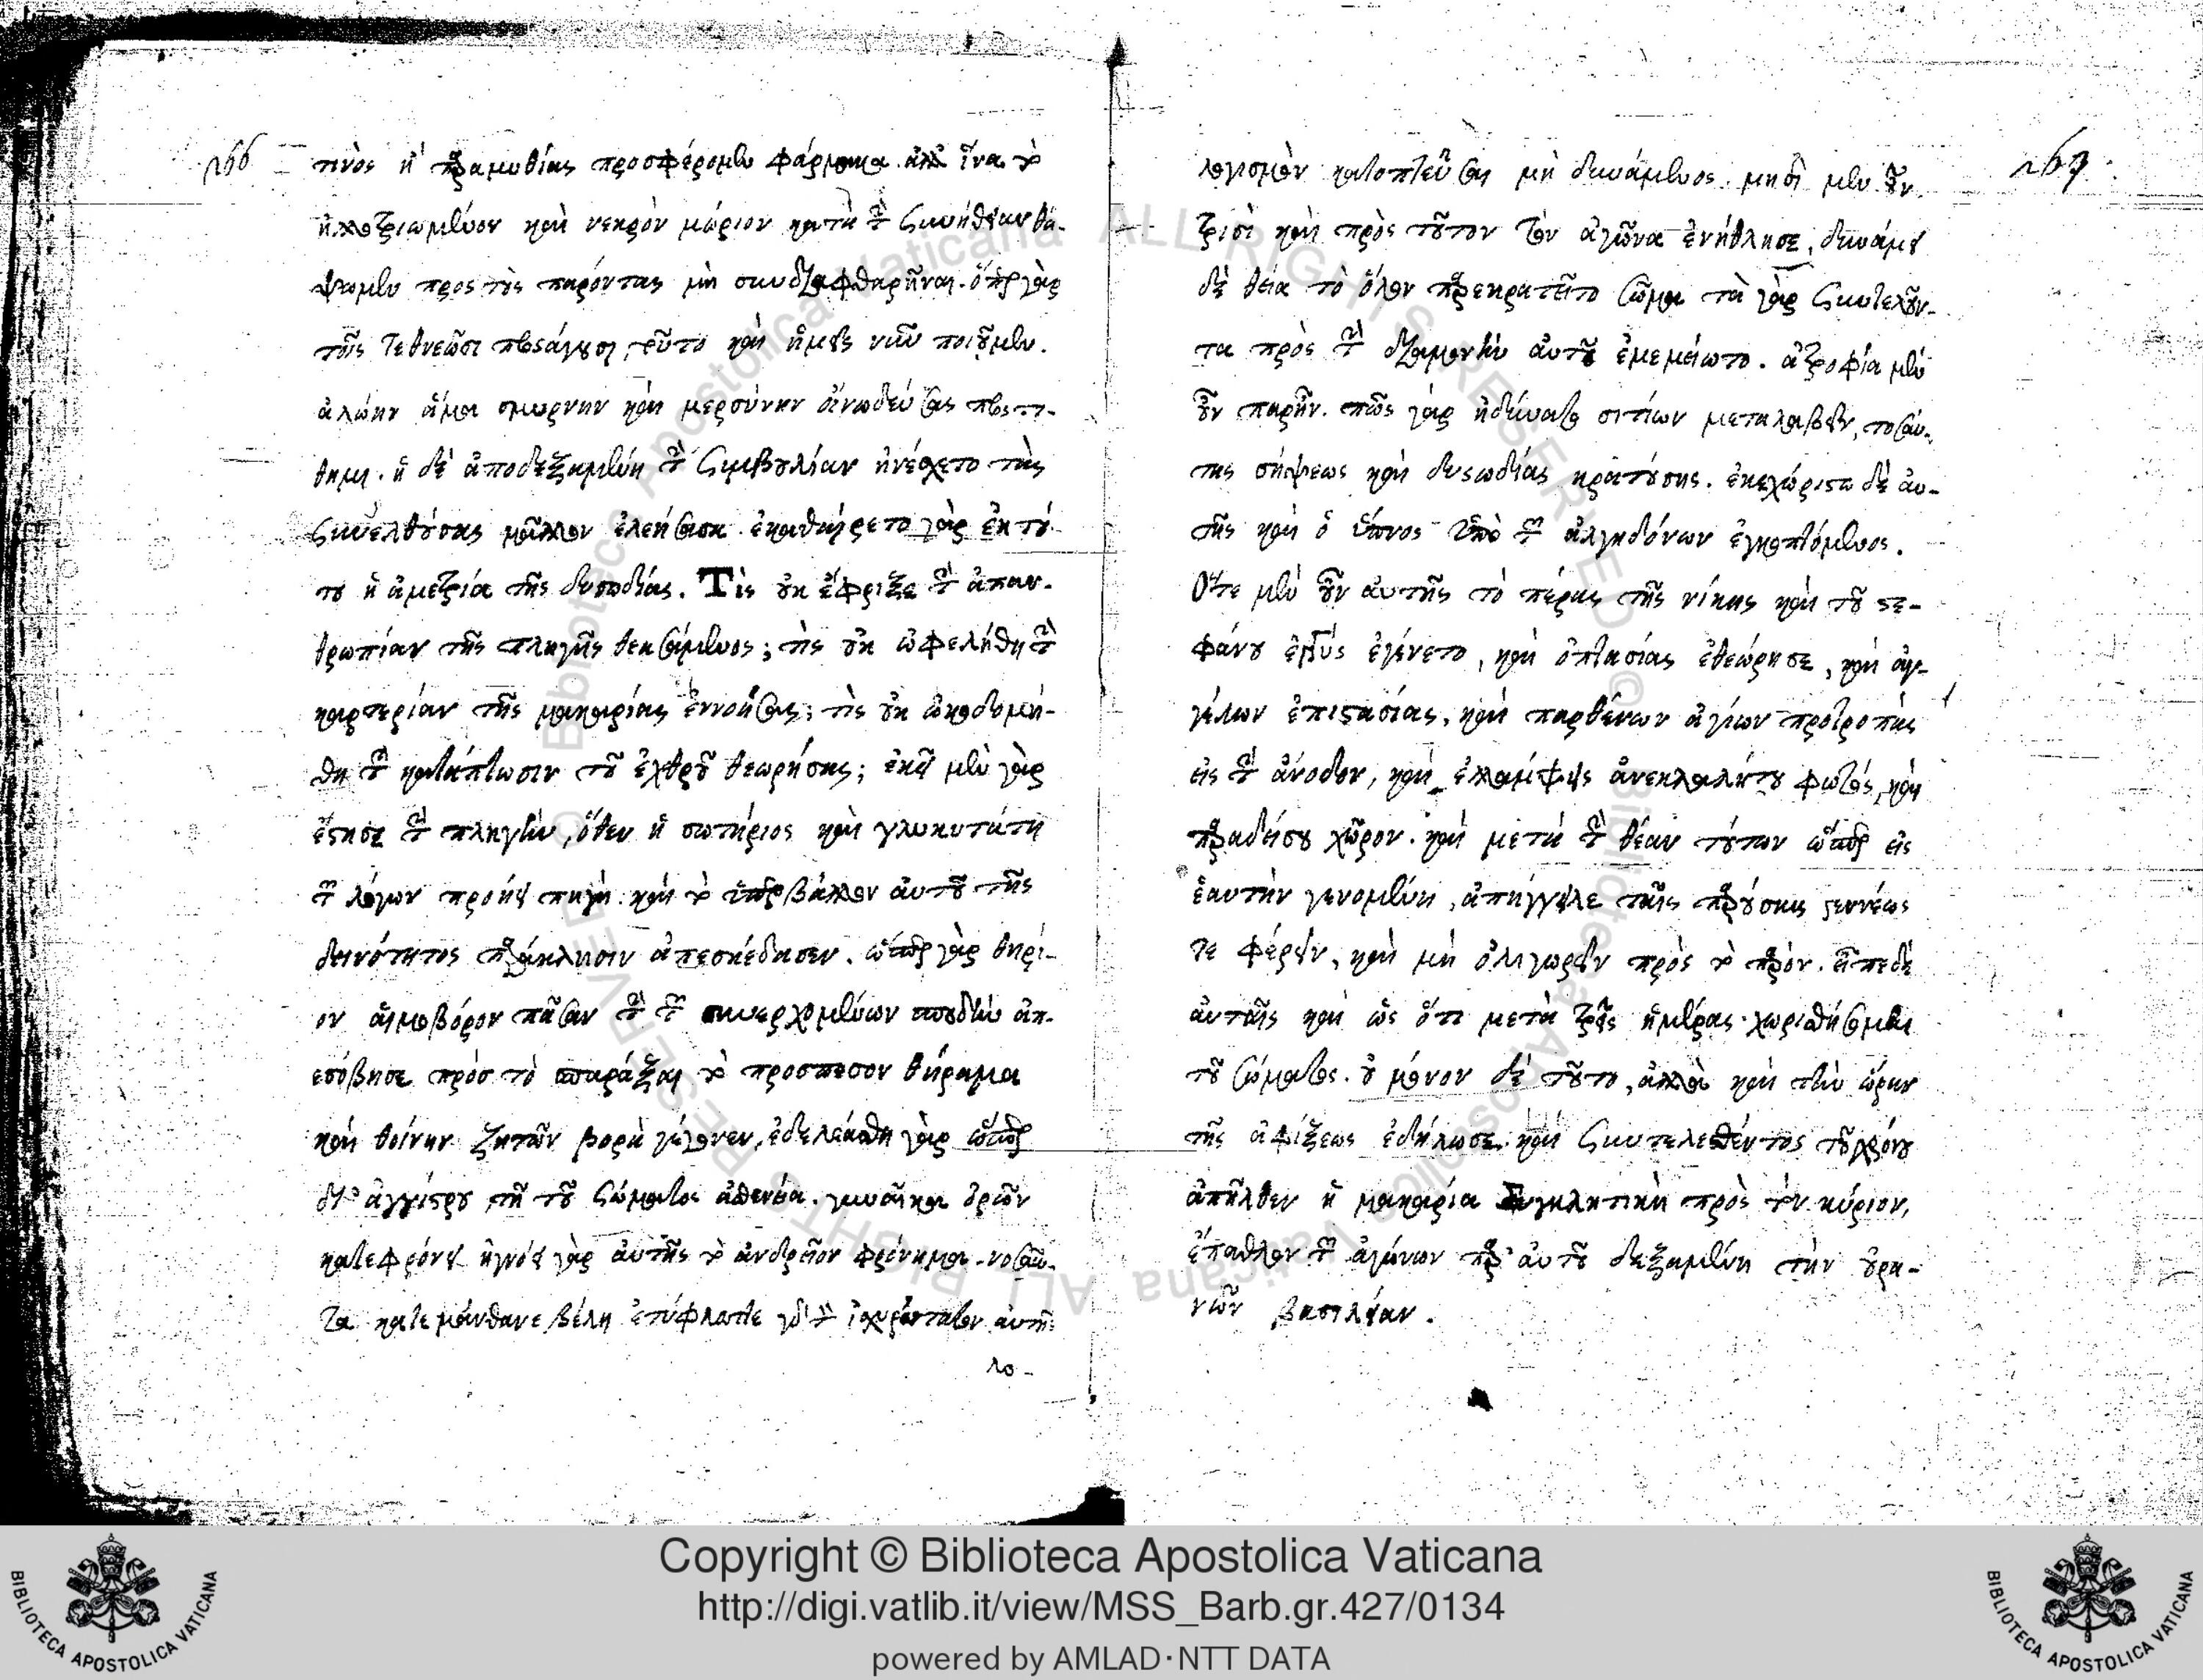 266
τινὸς ἢ παραμυθίας προσφέρομεν φάρμακα. ἀλλ' ἵνα τὸ
ἠλλοτριωμένον καὶ νεκρὸν μόριον κατὰ τὴν συνήθειαν θά-
ψωμεν πρὸς τοὺς παρόντας μὴ συνδιαφθαρῆναι. ὅπερ γὰρ
τοῖς τεθνεῶσι προσάγουσι, τοῦτο καὶ ἡμεῖς νῦν ποιοῦμεν.
ἀλώην ἅμα σμύρνην καὶ μερσύνην οἰνωδεύσας προστι-
θημι. ἡ δὲ ἀποδεξαμένη τὴν συμβουλίαν ἠνέσχετο τὰς
συνελθούσας μᾶλλον ἐλεήσασα. ἐκαθαίρετο γὰρ ἐκ τού-
του ἡ ἀμετρία τῆς δυσωδίας. Τίς οὐκ ἔφριξε τὴν ἀπαν-
θρωπίαν τῆς πληγῆς θεασάμενος; τίς οὐκ ὠφελήθη τὴν
καρτερίαν τῆς μακαρίας ἐννοήσας; τίς οὐκ ὠκοδομή-
θη τὴν κατάπτωσιν τοῦ ἐχθροῦ θεωρήσας; ἐκεῖ μὲν γὰρ
ἔστησε τὴν πληγὴν, ὅθεν ἡ σωτήριος καὶ γλυκυτάτη
τῶν λόγων προήει πηγή. καὶ τὸ ὑπερβάλλον αὐτοῦ τῆς
δεινότητος παράκλησιν ἀπεσκέδασεν. ὥσπερ γὰρ θηρί-
ον αἱμοβόρον πᾶσαν τὴν τῶν συνερχομένων σπουδὴν ἀπ-
εσόβησε πρὸς τὸ σπαράξαι τὸ προσπεσὸν θήραμα
καὶ θοίνην ζητῶν βορὰ γέγονεν, ἐδελεάσθη γὰρ ὥσπερ
δι' ἀγγίστρου τῇ τοῦ σώματος ἀσθενείᾳ. γυναῖκα ὁρῶν
κατεφρόνει ἠγνόει γὰρ αὐτῆς τὸ ἀνδρεῖον φρόνημα. νοσοῦν-
τα κατεμάνθανε μέλη ἐτύφλωττε γὰρ τὸν ἰσχυρότατον αὐτῆς
λο-
267
λογισμὸν κατοπτεῦσαι μὴ δυνάμενος. μησὶ μὲν οὖν
τρισὶ καὶ πρὸς τοῦτον τὸν ἀγῶνα ἐνήθλησε, δυνάμει
δὲ θεία τὸ ὅλον παρεκρατεῖτο σῶμα τὰ γὰρ συντελοῦν-
τα πρὸς τὴν διαμονὴν αὐτοῦ ἐμεμείωτο. ἀτροφία μὲν
οὖν παρῆν. πῶς γὰρ ἠδύνατο σιτίων μεταλαβεῖν, τοσαύ-
της σήψεως καὶ δυσωδίας κρατούσης. ἐκεχώριστο δὲ αὐ-
τῆς καὶ ὁ ὕπνος ὑπὸ τῶν ἀλγηδόνων ἐγκοπτόμενος.
Ὅτε μὲν οὖν αὐτῆς τὸ πέρας τῆς νίκης καὶ τοῦ στε-
φάνου ἐγγὺς ἐγένετο, καὶ ὀπτασίας ἐθεώρησε, καὶ ἀγ-
γέλων ἐπιστασίας, καὶ παρθένων ἁγίων προτροπὰς
εἰς τὴν ἄνοδον, καὶ ἐλλάμψεις ἀνεκλαλήτου φωτὸς, καὶ
παραδείσου χῶρον. καὶ μετὰ τὴν θέαν τούτων ὥσπερ εἰς
ἑαυτὴν γενομένη, ἀπήγγειλε ταῖς παρούσαις γενναίως
τε φέρειν, καὶ μὴ ὀλιγωρεῖν πρὸς τὸ παρόν. εἶπε δὲ
αὐταῖς καὶ ὡς ὅτι μετὰ τρεῖς ἡμέρας χωρισθήσομαι
τοῦ σώματος. οὐ μόνον δὲ τοῦτο, ἀλλὰ καὶ τὴν ὥραν
τῆς ἀφίξεως ἐδήλωσε. καὶ συντελεσθέντος τοῦ χρόνου
ἀπῆλθεν ἡ μακαρία Συγκλητικὴ πρὸς τὸν κύριον,
ἔπαθλον τῶν ἀγώνων παρ' αὐτοῦ δεξαμένη τὴν οὐρα-
νῶν βασιλείαν.
Copyright © Biblioteca Apostolica Vaticana
http://digi.vatlib.it/view/MSS_Barb.gr.427/0134
powered by AMLAD·NTT DATA
BIBLIOTECA APOSTOLICA VATICANA
BIBLIOTECA APOSTOLICA VATICANA